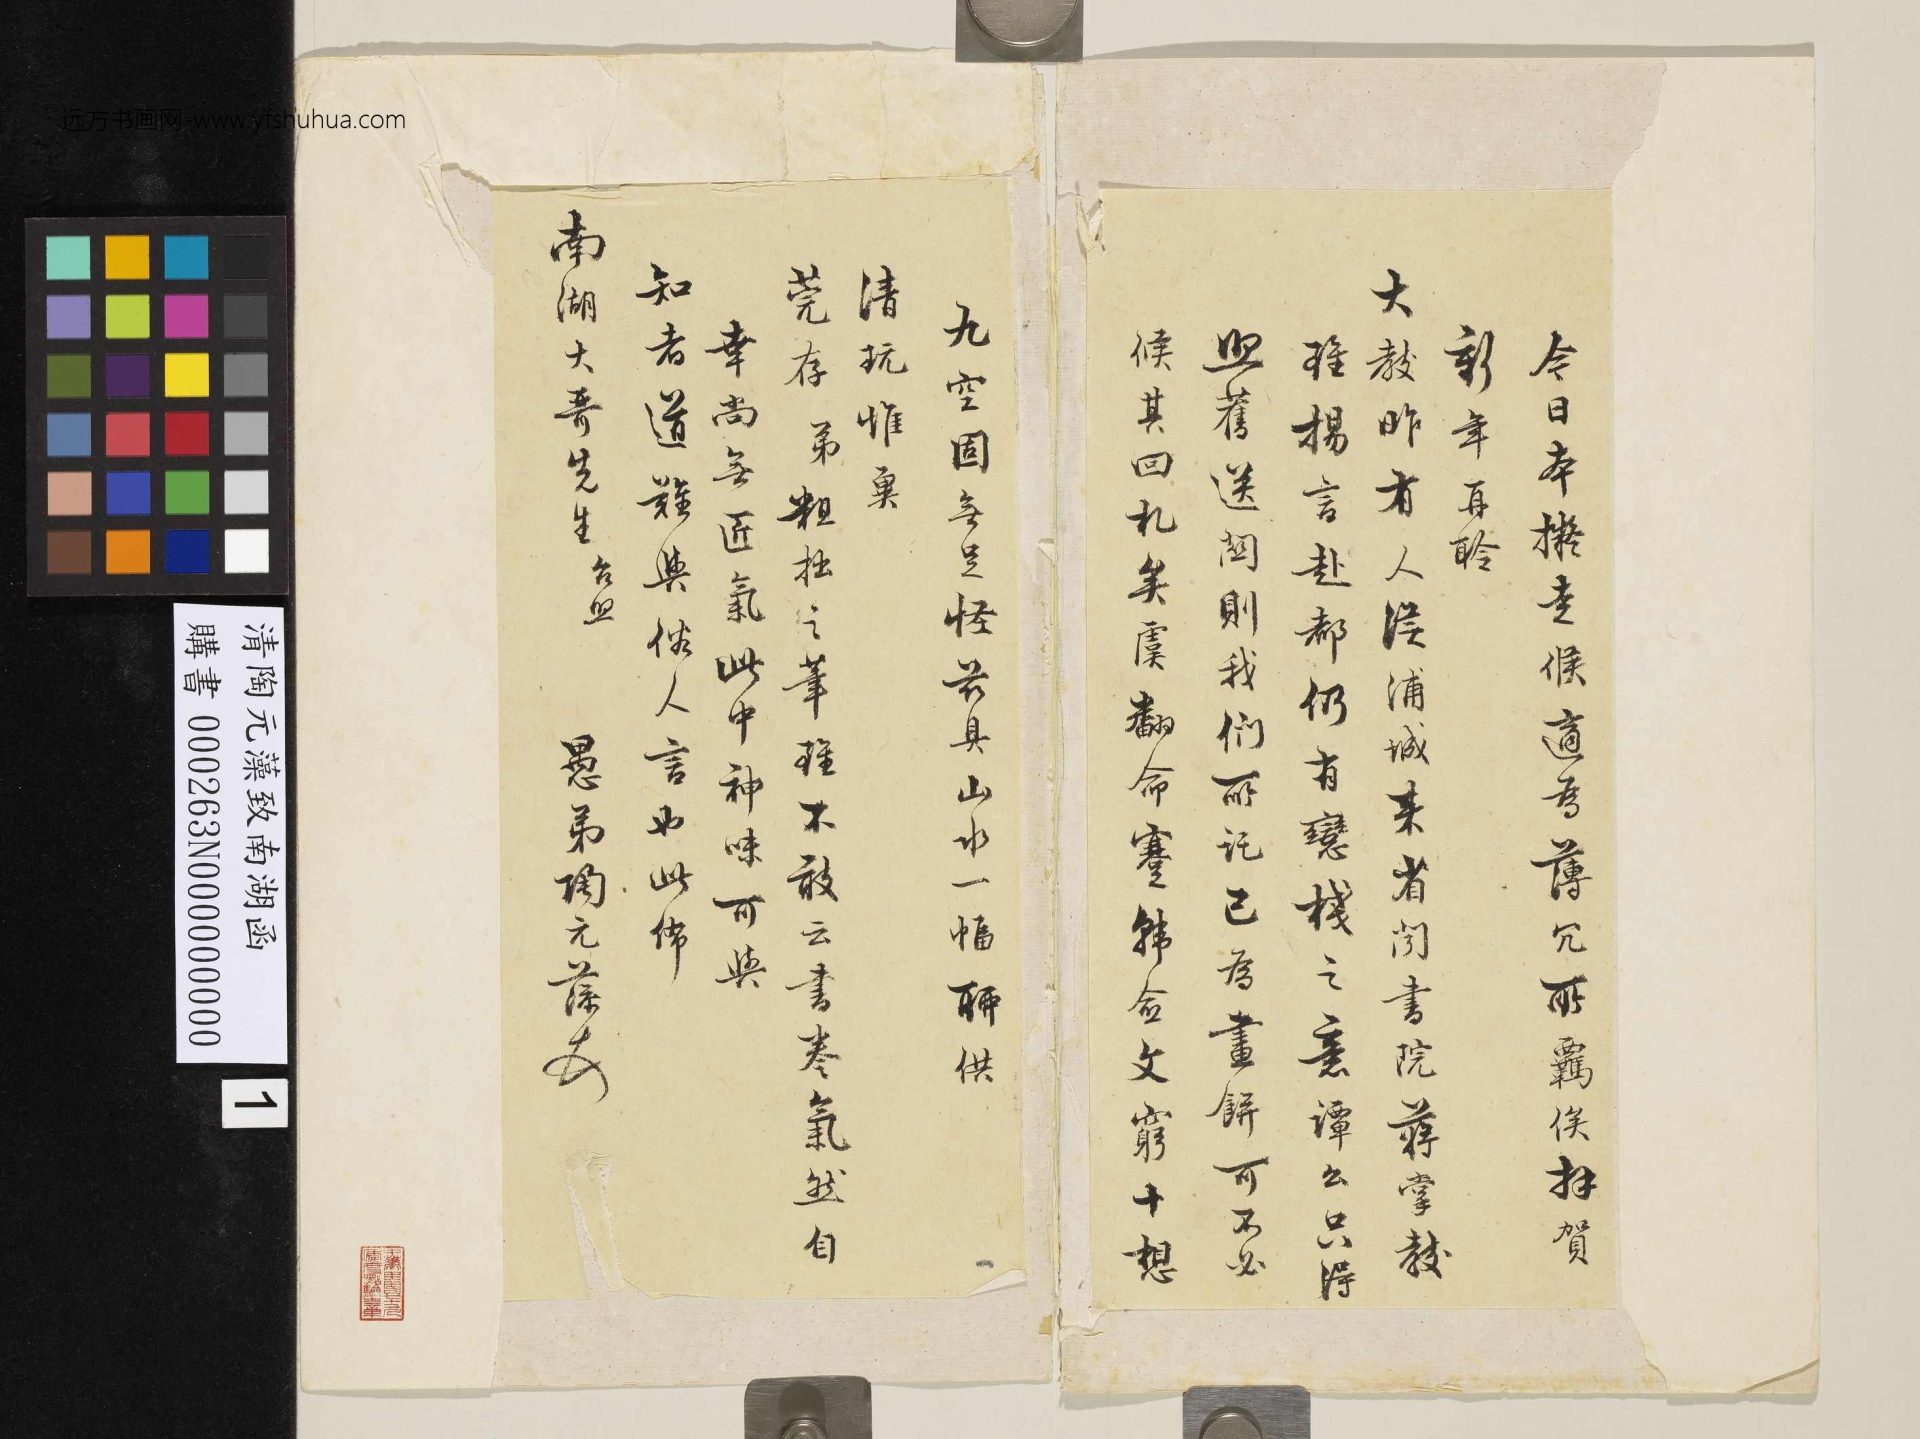 今日本擬走候適為薄冗所羈俟拜賀
新年再聆
大教昨有人從浦城來省聞書院蔣掌教
雖揚言赴都仍有戀棧之意譚公只得
照舊送關則我們所託已為畫餅可不必
候其回札矣虞翻命蹇韓愈文窮十想
九空固無足怪茲具山水一幅聊供
清玩惟冀
莞存弟粗拙之筆雖不敢云書卷氣然自
幸尚無匠氣此中神味可與
知者道難與俗人言也此佈
南湖大哥先生台照
愚弟陶元藻
远方书画网-www.yfshuhua.com
清陶元藻致南湖函
購書 0000263N000000000
1